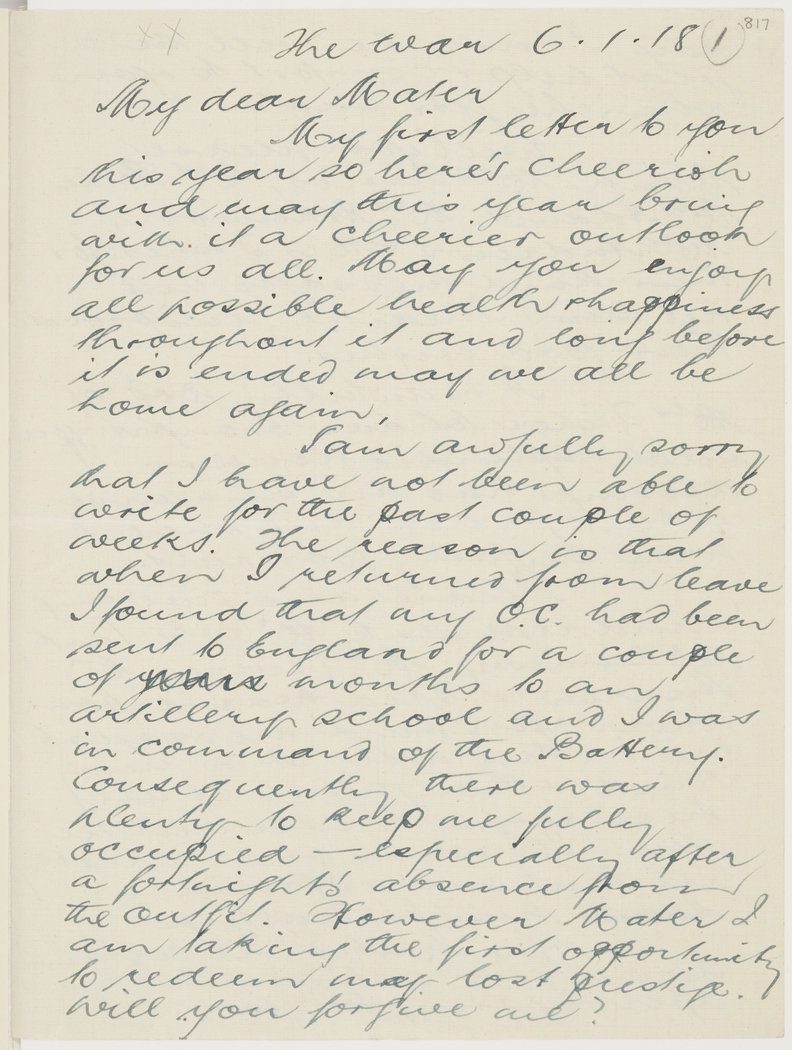 817
The war 6.1.18 1
My dear Mater
My first letter to you
this year so here's Cheerioh
and may this year bring
with it a cheerier outlook
for us all. May you enjoy
all possible health & happiness
throughout it and long before
it is ended may we all be
home again.
I am awfully sorry
that I have not been able to
write for the past couple of
weeks. The reason is that
when I returned from leave
I found that my O.C. had been
sent to England for a couple
of years months to an
artillery school and I was
in command of the Battery.
Consequently there was
plenty to keep me fully
occupied — especially after
a fortnight's absence from
the outfit. However Mater I
am taking the first opportunity
to redeem my lost prestige.
Will you forgive me?